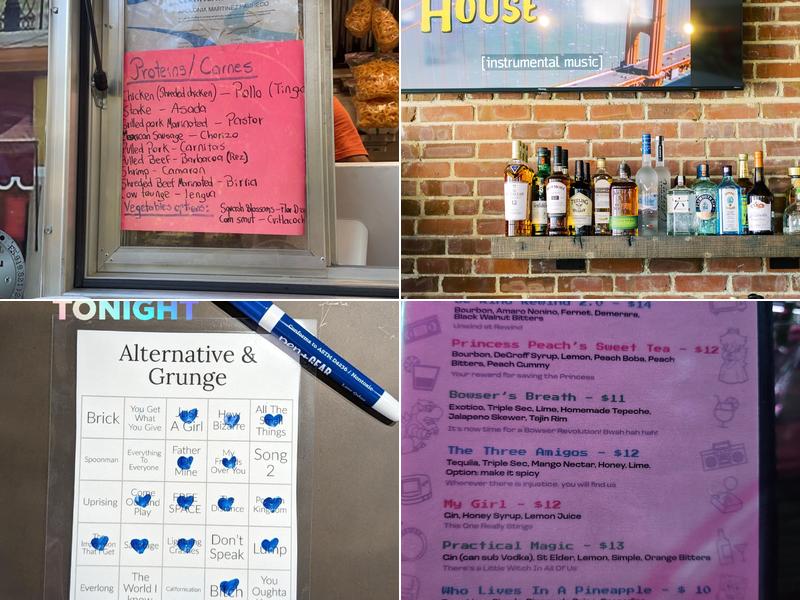 Proteins/Carnes
Chicken (Shreded chicken) - Pollo (Tinga
- Asada
Grilled pork Marinated - Pastor
Mexican Sausage - Chorizo
Pulled Pork - Carnitas
Pulled Beef - Barbacoa (Rez)
Shrimp - Camaron
Shreded Beef Marinated - Birria
Cow tounge - lengua
Vegetables options: Squash Blossoms - Flor D
Corn smut - Cuitlacoch
HOUSE
[instrumental music]
TONIGHT
Conforms to ASTM D4236 / Nontoxic
pen+GEAR
Alternative &
Grunge
Brick
You Get What You Give
Just A Girl
How Bizarre
All The Small Things
Spoonman
Everything To Everyone
Father Mine
My Friends Over You
Song 2
Uprising
Come Out And Play
FREE SPACE
The Distance
Kingdom
That I Get
Lightning Crashes
Don't Speak
Lump
Everlong
The World I
Californication
Bitch
You Oughta
Rewind 2.0 - $14
Bourbon, Amaro Nonino, Fernet, Demerara,
Black Walnut Bitters
Unwind at Rewind
Princess Peach's Sweet Tea - $12
Bourbon, DeGroff Syrup, Lemon, Peach Boba, Peach
Bitters, Peach Gummy
Your reward for saving the Princess
Bowser's Breath - $11
Exotico, Triple Sec, Lime, Homemade Tepeche,
Jalapeno Skewer, Tajin Rim
It's now time for a Bowser Revolution! Bwah hah hah!
The Three Amigos - $12
Tequila, Triple Sec, Mango Nectar, Honey, Lime.
Option: make it spicy
Wherever there is injustice, you will find us
My Girl - $12
Gin, Honey Syrup, Lemon Juice
This One Really Stings
Practical Magic - $13
Gin (can sub Vodka), St Elder, Lemon, Simple, Orange Bitters
There's a Little Witch In All Of Us
Who Lives In A Pineapple - $ 10